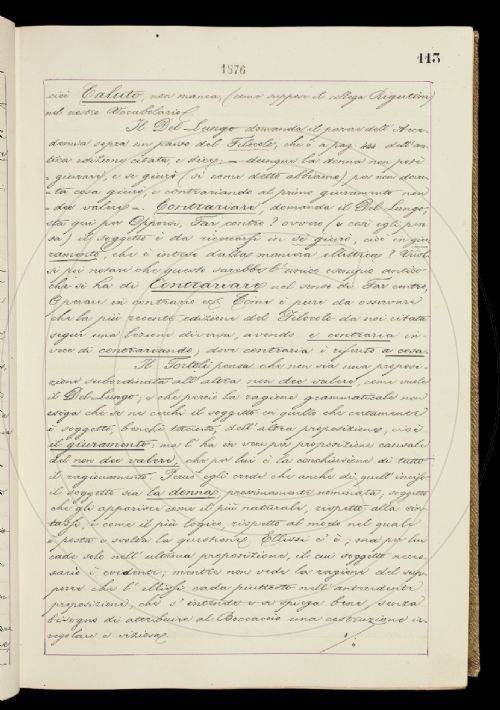 113
1876
cioè Caluto, non manca, (come suppose il collega Rigutini)
nel nostro Vocabolario.
Il Del Lungo domanda il parere dell'Acca-
demia sopra un passo del Filocolo, che è a pag. dell'an-
tica edizione citata, e dice: — dunque la donna non potè
giurare, e se giurò (sì come detto abbiamo) per non dovu-
ta cosa giurò, e contrariando al primo giuramento non
dee valere —. Contrariare, domanda il Del Lungo,
sta qui per Opporsi, Far contro? ovvero (e così egli pen-
sa) il soggetto è da ricercarsi in se giurò, cioè in giu-
ramento, che è inteso dalla maniera ellittica? Vuol-
si poi notare che questo sarebbe l'unico esempio antico
che si ha di Contrariare nel senso di Far contro,
Operare in contrario ec. Come è pure da osservare
che la più recente edizione del Filocolo da noi citata
segue una lezione diversa, avendo e contraria in
vece di contrariando, dove contraria è riferito a cosa.
Il Tortoli pensa che non sia una proposi-
zione subordinata all'altra non dee valere, come vuole
il Del Lungo; e che perciò la ragione grammaticale non
esiga che se ne cerchi il soggetto in quello che certamente
è soggetto, benchè taciuto, dell'altra proposizione, cioè
il giuramento; ma l'ha in vece per proposizione causale
del non dee valere, che per lui è la conchiusione di tutto
il ragionamento. Perciò egli crede che anche di quell'inciso
il soggetto sia la donna, prossimamente nominata; soggetto
che gli apparisce come il più naturale, rispetto alla sin-
tassi, e come il più logico, rispetto al modo nel quale
è posta e svolta la questione. Ellissi c'è, ma per lui
cade solo nell'ultima proposizione, il cui soggetto neces-
sario è evidente; mentre non vede la ragione del sup-
porre che l'ellissi cada piuttosto nell'antecedente
proposizione, che s'intende e si spiega bene senza
bisogno di attribuire al Boccaccio una costruzione ir-
regolare e viziosa.